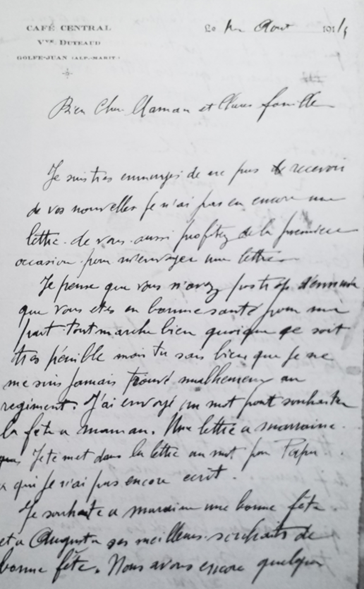 CAFÉ CENTRAL
Vve DUTEAUD
GOLFE-JUAN (ALP.-MARIT.)
Le Août 191
Bien Cher Maman et Chere famille
Je suis tres ennuyé de ne pas recevoir
de vos nouvelles je n'ai pas eu encore une
lettre de vous aussi profitez de la premiere
occasion pour m'envoyer une lettre
Je pense que vous n'avez pas trop d'ennuis
que vous etes en bonne santé pour ma
part tout marche bien quoique ce soit
tres pénible mais tu sais bien que je ne
me suis jamais trouvé malheureux au
regiment. J'ai envoyé un mot pour souhaiter
la fête a maman. Une lettre a marraine
Je te met dans la lettre un mot pour Papa
a qui je n'ai pas encore ecrit.
Je souhaite a marraine une bonne fête
et a Augusta ses meilleurs souhaits de
bonne fête. Nous avons encore quelques